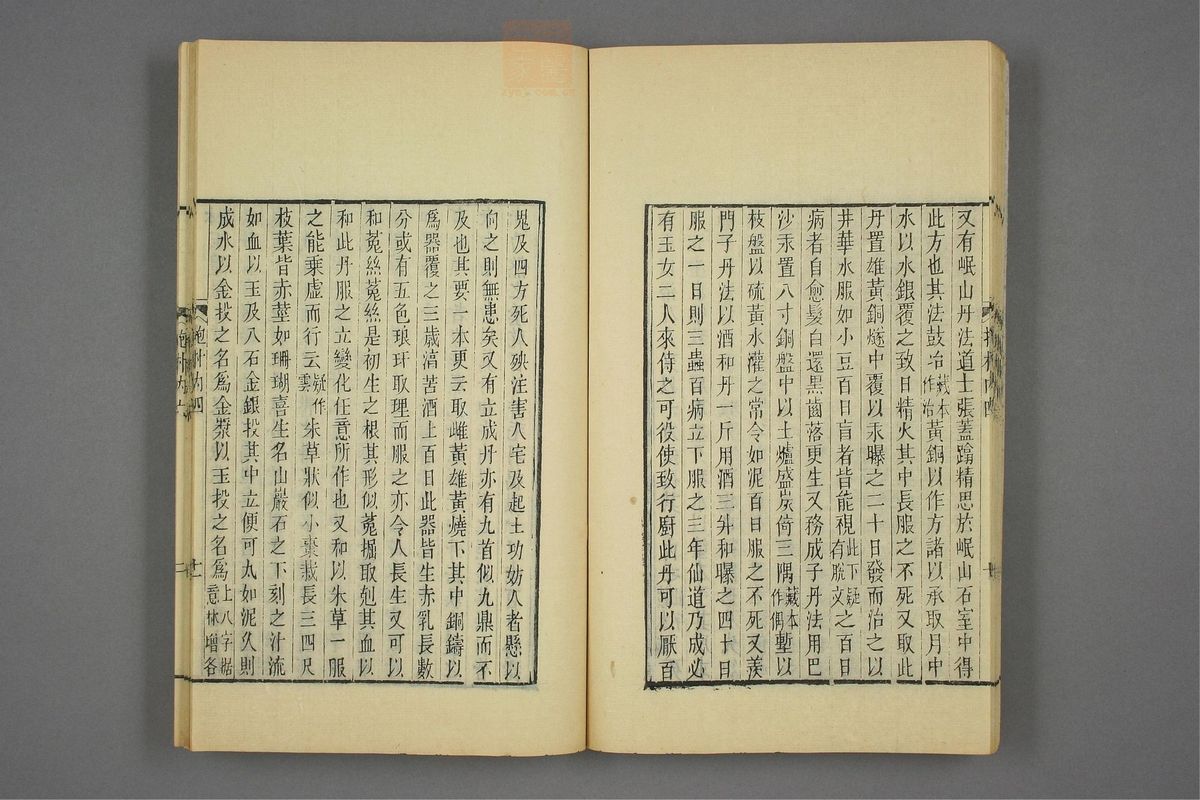 又有岷山丹法道士張蓋蹹精思於岷山石室中得
此方也其法鼓冶藏本作治黃銅以作方諸以承取月中
水以水銀覆之致日精火其中長服之不死又取此
丹置雄黃銅燧中覆以汞曝之二十日發而治之以
井華水服如小豆百日盲者皆能視此下疑有脫文之百日
病者自愈髮白還黑齒落更生又務成子丹法用巴
沙汞置八寸銅盤中以土爐盛炭倚三隅藏本作偶塹以
枝盤以硫黃水灌之常令如泥百日服之不死又羨
門子丹法以酒和丹一斤用酒三升和曝之四十日
服之一日則三蟲百病立下服之三年仙道乃成必
有玉女二人來侍之可役使致行廚此丹可以厭百
鬼及四方死人殃注害人宅及起土功妨人者懸以
向之則無患矣又有立成丹亦有九首似九鼎而不
及也其要一本更云取雌黃雄黃燒下其中銅鑄以
爲器覆之三歲淳苦酒上百日此器皆生赤乳長數
分或有五色琅玕取理而服之亦令人長生又可以
和菟絲菟絲是初生之根其形似菟掘取剋其血以
和此丹服之立變化任意所作也又和以朱草一服
之能乘虛而行云疑作雲朱草狀似小棗栽長三四尺
枝葉皆赤莖如珊瑚喜生名山巖石之下刻之汁流
如血以玉及八石金銀投其中立便可丸如泥久則
成水以金投之名爲金漿以玉投之名爲上八字據意林增各
抱朴內四
十二